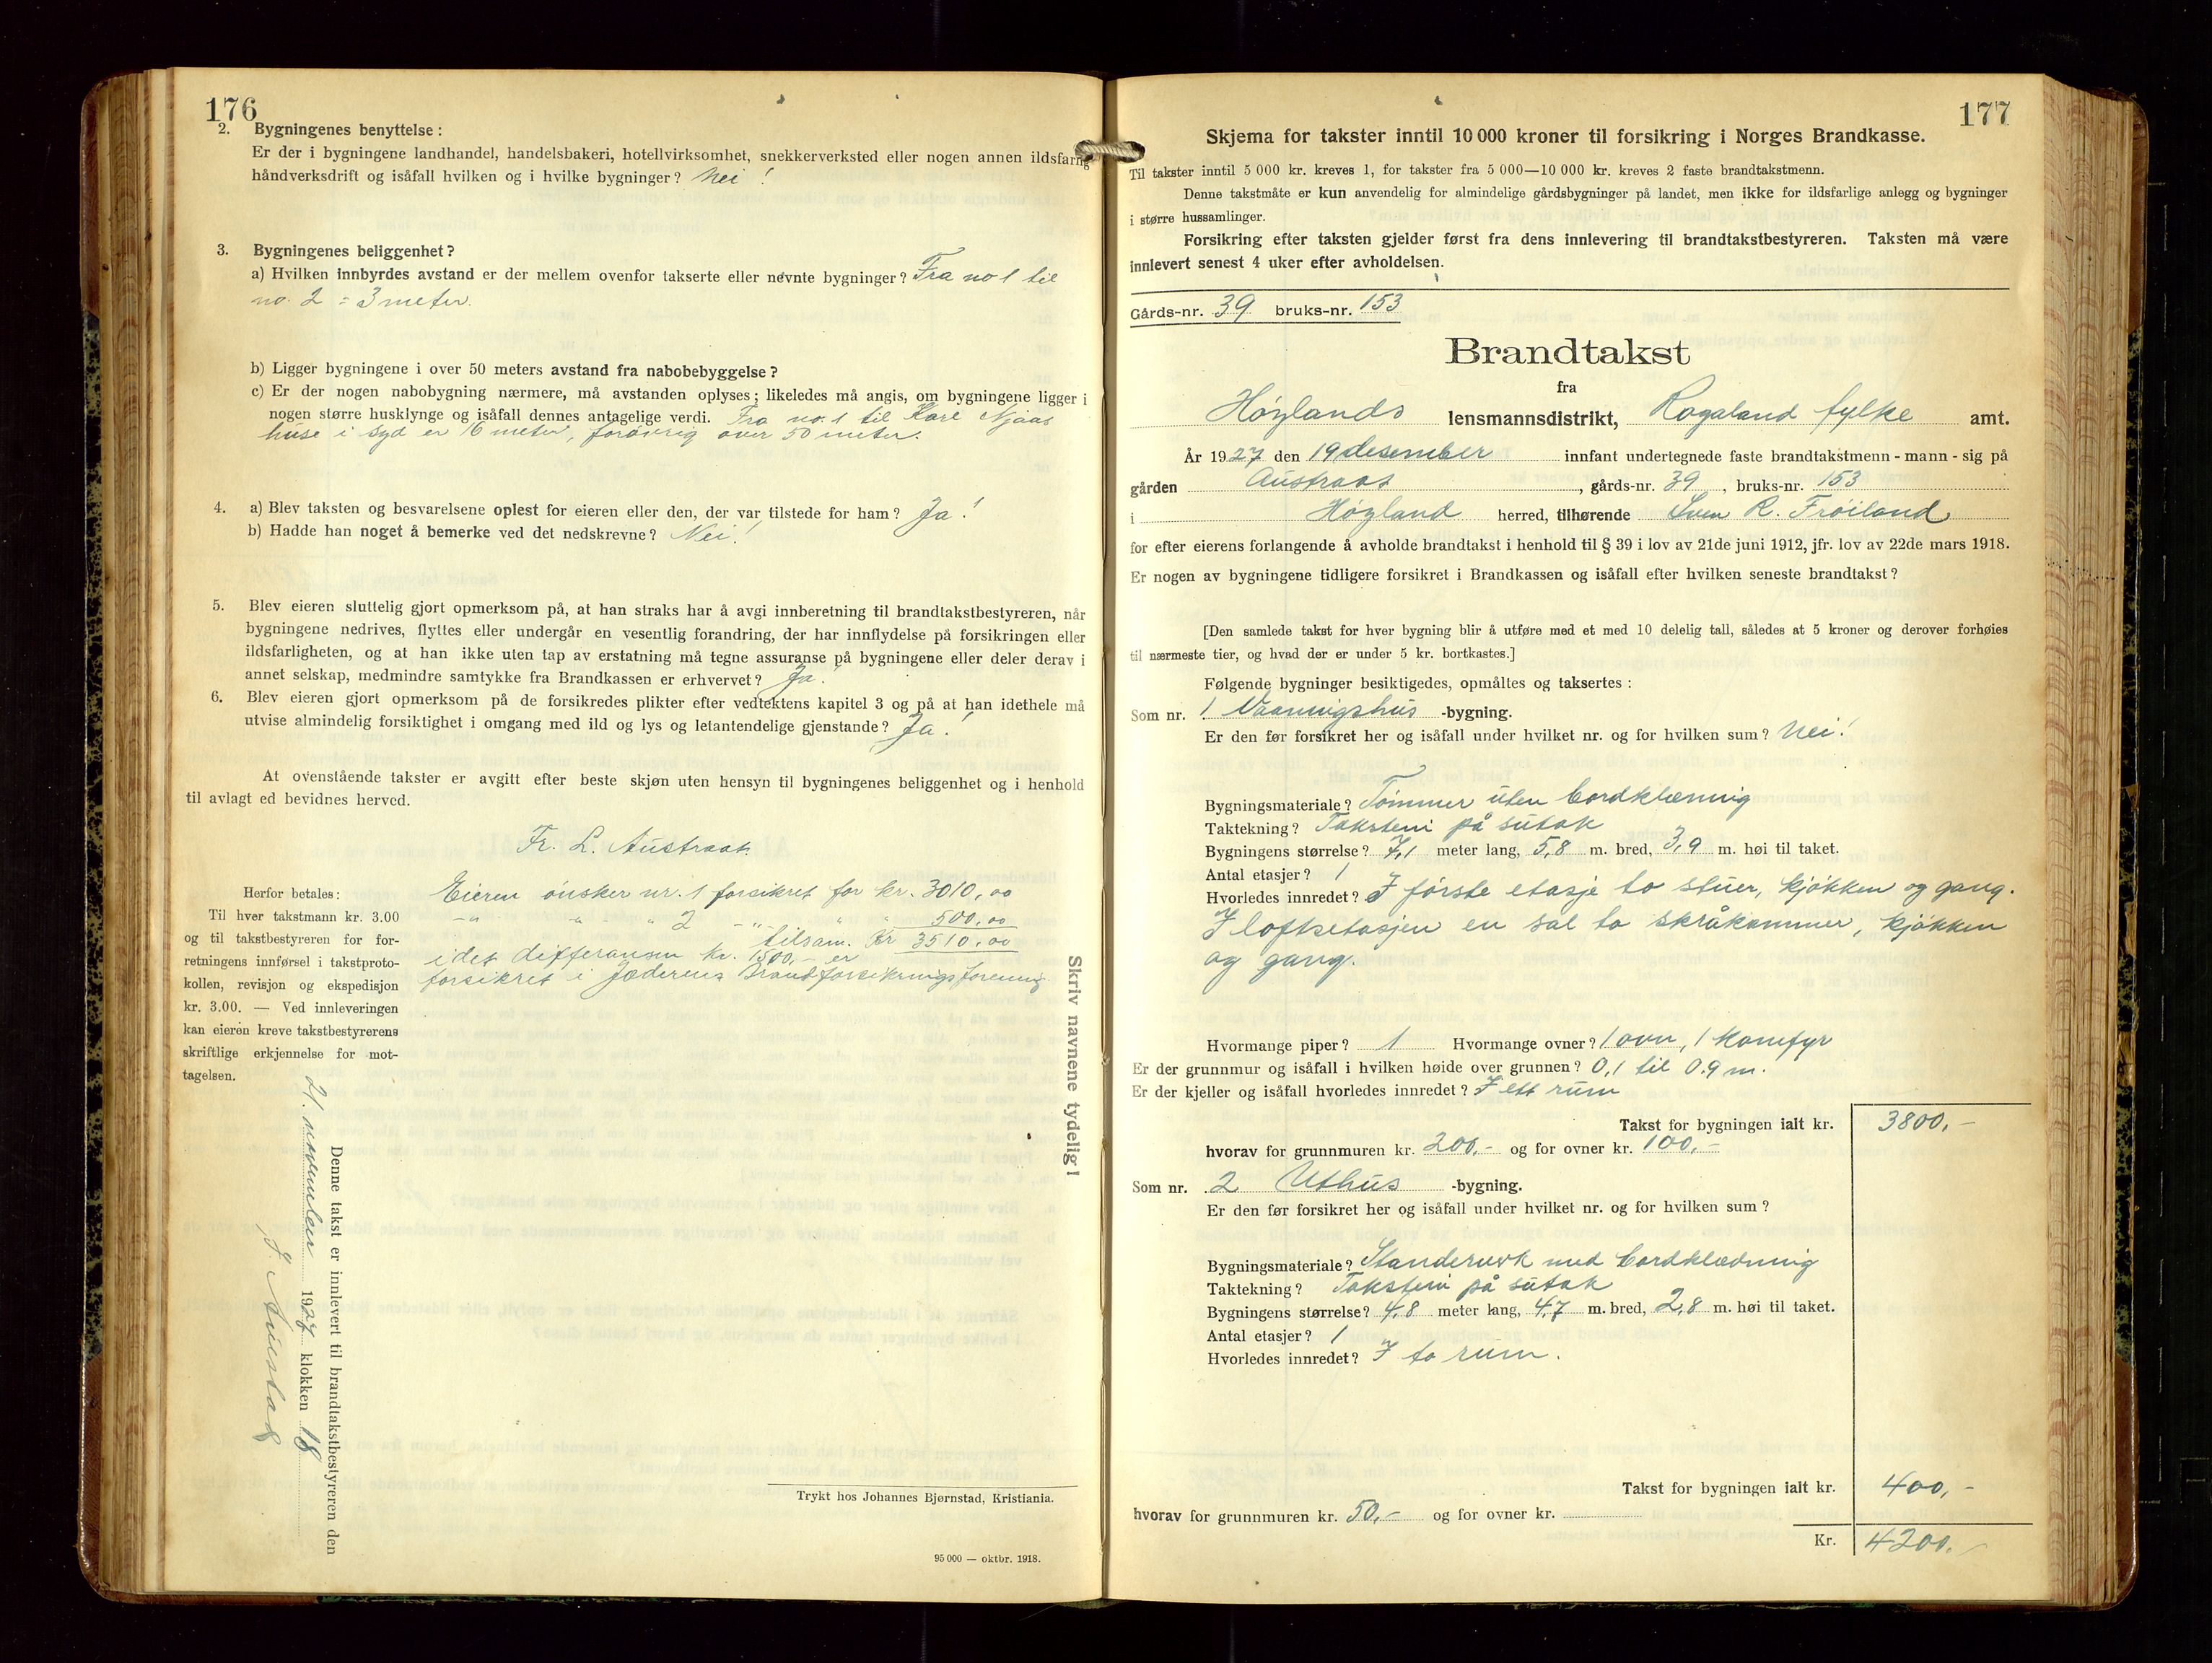 176
2. Bygningenes benyttelse:
Er der i bygningene landhandel, handelsbakeri, hotellvirksomhet, snekkerverksted eller nogen annen ildsfarlig
håndverksdrift og isåfall hvilken og i hvilke bygninger? Nei!
3. Bygningenes beliggenhet?
a) Hvilken innbyrdes avstand er der mellem ovenfor takserte eller nevnte bygninger? Fra no 1 til
no. 2 = 3 meter.
b) Ligger bygningene i over 50 meters avstand fra nabobebyggelse?
c) Er der nogen nabobygning nærmere, må avstanden oplyses; likeledes må angis, om bygningene ligger i
nogen større husklynge og isåfall dennes antagelige verdi. Fra no. 1 til Kare Njaas
huse i syd er 16 meter, forøvrig over 50 meter.
4. a) Blev taksten og besvarelsene oplest for eieren eller den, der var tilstede for ham? Ja!
b) Hadde han noget å bemerke ved det nedskrevne? Nei!
5. Blev eieren sluttelig gjort opmerksom på, at han straks har å avgi innberetning til brandtakstbestyreren, når
bygningene nedrives, flyttes eller undergår en vesentlig forandring, der har innflydelse på forsikringen eller
ildsfarligheten, og at han ikke uten tap av erstatning må tegne assuranse på bygningene eller deler derav i
annet selskap, medmindre samtykke fra Brandkassen er erhvervet? Ja!
6. Blev eieren gjort opmerksom på de forsikredes plikter efter vedtektens kapitel 3 og på at han idethele må
utvise almindelig forsiktighet i omgang med ild og lys og letantendelige gjenstande? Ja!
At ovenstående takster er avgitt efter beste skjøn uten hensyn til bygningenes beliggenhet og i henhold
til avlagt ed bevidnes herved.
Fr. L. Austraat.
Eieren ønsker nr. 1 forsikret for kr. 3010,00
-"- " " 2 -"- " " 500,00
tilsam. Kr 3510,00
idet differansen kr. 1500,- er
forsikret i Jæderens Brandforsikringsforening
Herfor betales:
Til hver takstmann kr. 3.00
og til takstbestyreren for for-
retningens innførsel i takstproto-
kollen, revisjon og ekspedisjon
kr. 3.00. — Ved innleveringen
kan eieren kreve takstbestyrerens
skriftlige erkjennelse for mot-
tagelsen.
Skriv navnene tydelig!
Denne takst er innlevert til brandtakstbestyreren den
21. november 1927 klokken 18
Trykt hos Johannes Bjørnstad, Kristiania.
95 000 — oktbr. 1918.
177
Skjema for takster inntil 10 000 kroner til forsikring i Norges Brandkasse.
Til takster inntil 5 000 kr. kreves 1, for takster fra 5 000—10 000 kr. kreves 2 faste brandtakstmenn.
Denne takstmåte er kun anvendelig for almindelige gårdsbygninger på landet, men ikke for ildsfarlige anlegg og bygninger
i større hussamlinger.
Forsikring efter taksten gjelder først fra dens innlevering til brandtakstbestyreren. Taksten må være
innlevert senest 4 uker efter avholdelsen.
Gårds-nr. 39 bruks-nr. 153
Brandtakst
fra
Høylands lensmannsdistrikt, Rogaland fylke amt.
År 1927 den 19 desember innfant undertegnede faste brandtakstmenn - mann - sig på
gården Austraat, gårds-nr. 39, bruks-nr. 153
i Høyland herred, tilhørende Sven R. Frøiland
for efter eierens forlangende å avholde brandtakst i henhold til § 39 i lov av 21de juni 1912, jfr. lov av 22de mars 1918.
Er nogen av bygningene tidligere forsikret i Brandkassen og isåfall efter hvilken seneste brandtakst?
[Den samlede takst for hver bygning blir å utføre med et med 10 delelig tall, således at 5 kroner og derover forhøies
til nærmeste tier, og hvad der er under 5 kr. bortkastes.]
Følgende bygninger besiktigedes, opmåltes og taksertes:
Som nr. 1 Vaaningshus -bygning.
Er den før forsikret her og isåfall under hvilket nr. og for hvilken sum? Nei!
Bygningsmateriale? Tømmer uten bordklæning
Taktekning? Taksten på sutak
Bygningens størrelse? 7,1 meter lang, 5,8 m. bred, 3,9 m. høi til taket.
Antal etasjer? 1
Hvorledes innredet? I første etasje to stuer, kjøkken og gang.
I loftsetasjen en sal to skråkammer, kjøkken
og gang.
Hvormange piper? 1 Hvormange ovner? 1 ovn, 1 komfyr
Er der grunnmur og isåfall i hvilken høide over grunnen? 0,1 til 0.9 m.
Er der kjeller og isåfall hvorledes innredet? I ett rum
Takst for bygningen ialt kr. 3800,-
hvorav for grunnmuren kr. 200,- og for ovner kr. 100,-
Som nr. 2 Uthus -bygning.
Er den før forsikret her og isåfall under hvilket nr. og for hvilken sum?
Bygningsmateriale? Standerverk med bordklædning
Taktekning? Taksten på sutak
Bygningens størrelse? 4,8 meter lang, 4,7 m. bred, 2,8 m. høi til taket.
Antal etasjer? 1
Hvorledes innredet? I to rum.
Takst for bygningen ialt kr. 400,-
hvorav for grunnmuren kr. 50,- og for ovner kr.
Kr. 4200,-